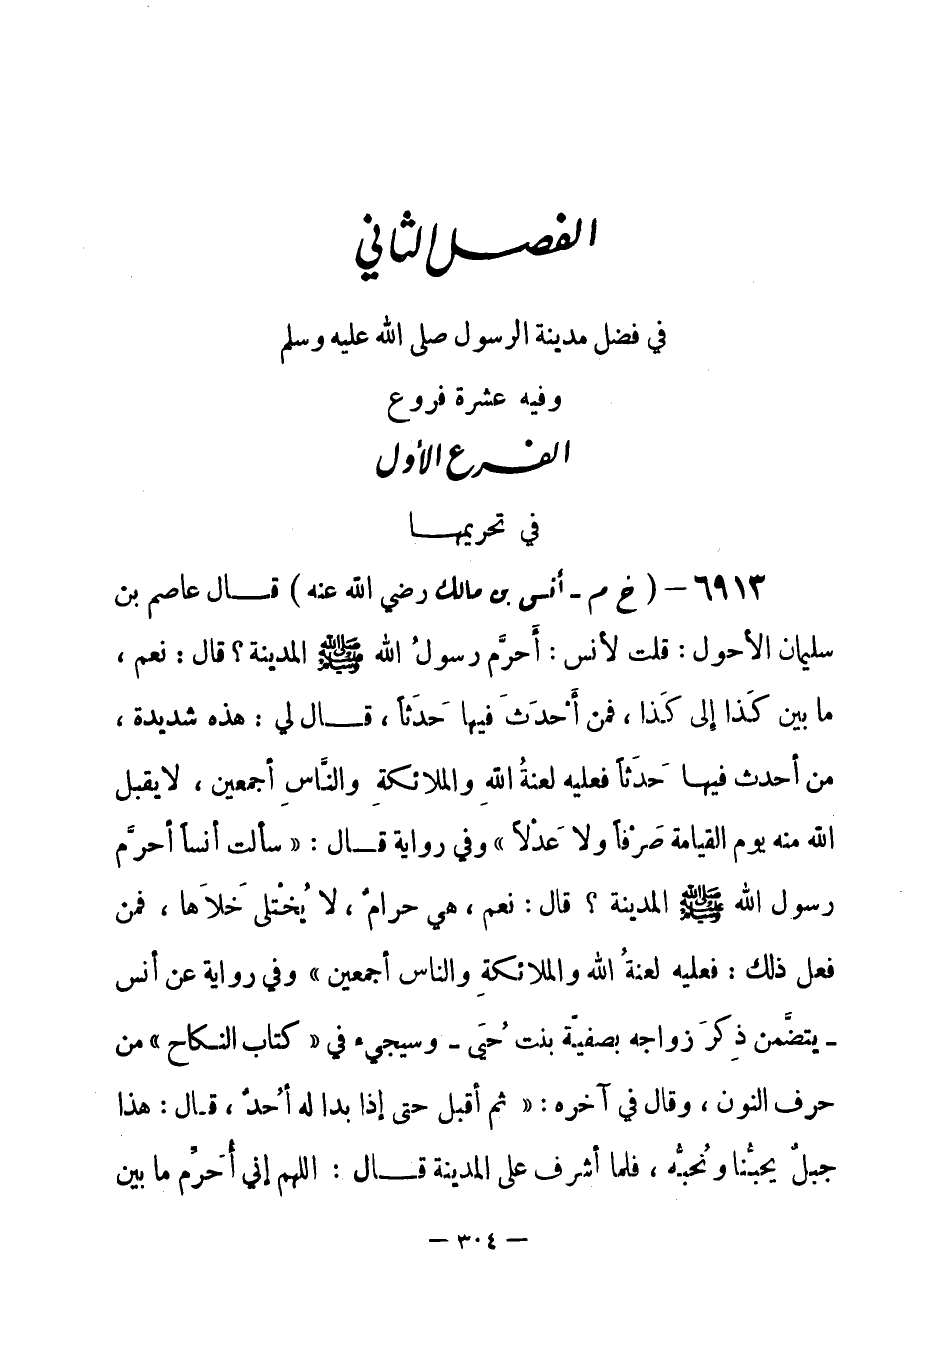 الفصل الثاني
في فضل مدينة الرسول صلى الله عليه وسلم
وفيه عشرة فروع
الفرع الأول
في تحريمها
٦٩١٣ – ( خ م - أنس بن مالك رضي الله عنه ) قال عاصم بن
سليمان الأحول : قلت لأنس : أَحرَّم رسولُ الله ﷺ المدينة ؟ قال : نعم ،
ما بين كَذا إلى كَذا ، فمن أَحْدَثَ فيها حَدَثاً ، قال لي : هذه شديدة ،
من أحدث فيها حَدَثاً فعليه لعنةُ اللهِ والملائكةِ والنَّاسِ أجمعين ، لا يقبل
الله منه يوم القيامة صَرْفاً ولا عَدْلاً » وفي رواية قال : « سألت أنساً أحرَّم
رسول الله ﷺ المدينة ؟ قال : نعم ، هي حرامٌ ، لا يُخْتلى خَلاَها ، فمن
فعل ذلك : فعليه لعنةُ الله والملائكةِ والناس أجمعين » وفي رواية عن أنس
- يتضَّمن ذِكرَ زواجه بصفيّة بنت حُيَي - وسيجيء في « كتاب النكاح » من
حرف النون ، وقال في آخره : « ثم أقبل حتى إذا بدا له أُحدٌ ، قال : هذا
جبلٌ يحبُّنا ونُحبُّه ، فلما أشرف على المدينة قال : اللهم إني أُحَرِّم ما بين
– ٣٠٤ –